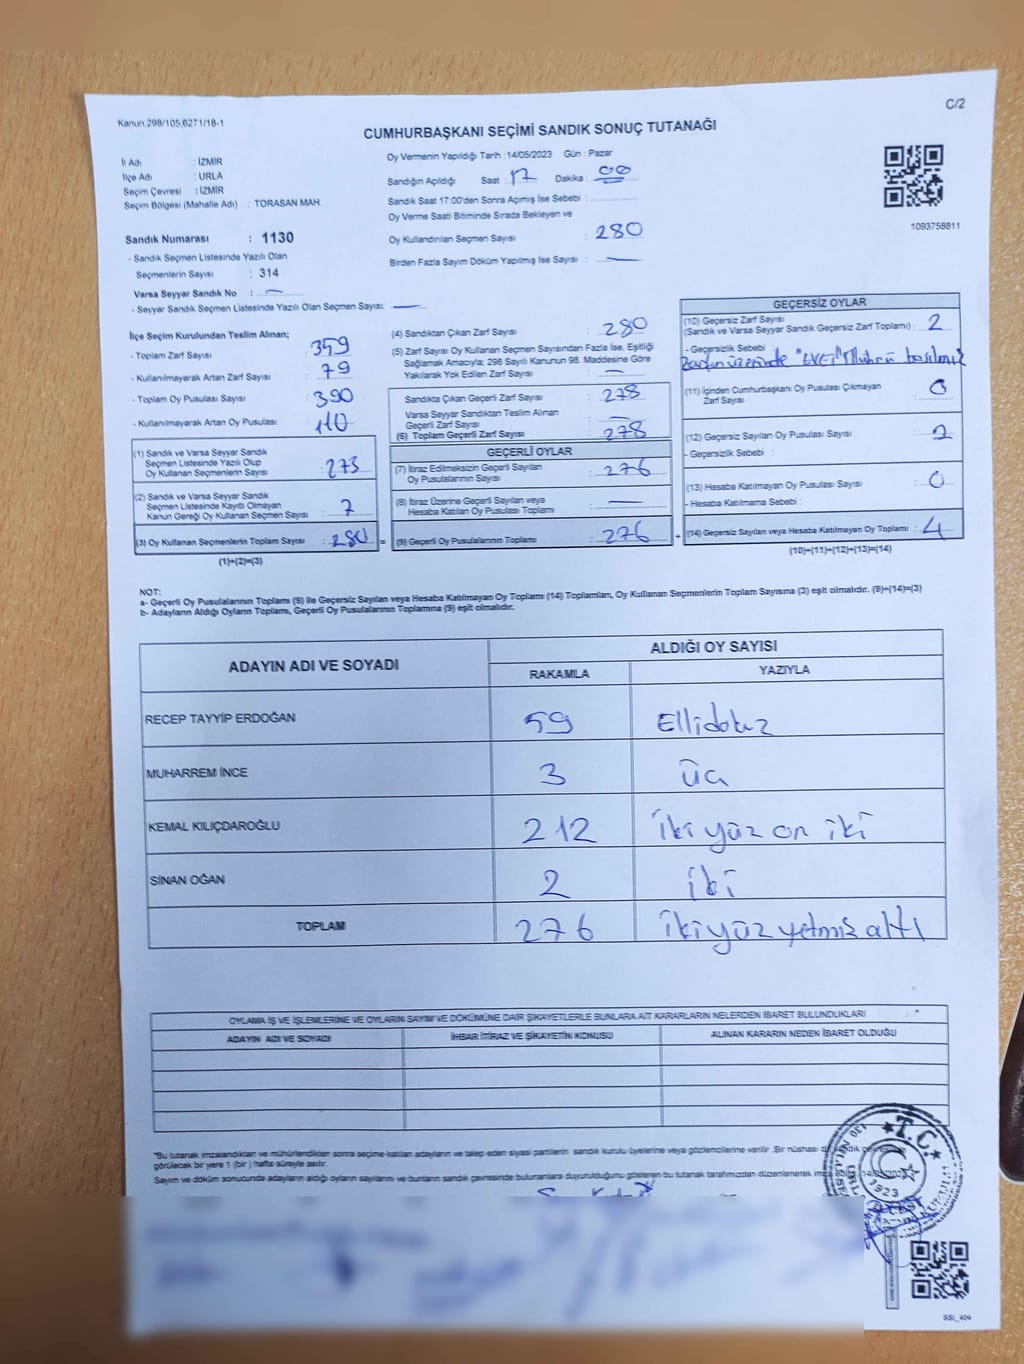 C/2
Kanun,298/105,6271/18-1
CUMHURBAŞKANI SEÇİMİ SANDIK SONUÇ TUTANAĞI
İl Adı : İZMİR
İlçe Adı : URLA
Seçim Çevresi : İZMİR
Seçim Bölgesi (Mahalle Adı) : TORASAN MAH.
Sandık Numarası : 1130
- Sandık Seçmen Listesinde Yazılı Olan
Seçmenlerin Sayısı : 314
Varsa Seyyar Sandık No : —
- Seyyar Sandık Seçmen Listesinde Yazılı Olan Seçmen Sayısı: —
Oy Vermenin Yapıldığı Tarih : 14/05/2023 Gün : Pazar
Sandığın Açıldığı Saat : 17 Dakika : 00
Sandık Saat 17:00'den Sonra Açımış İse Sebebi :
Oy Verme Saati Bitiminde Sırada Bekleyen ve
Oy Kullandırılan Seçmen Sayısı : 280
Birden Fazla Sayım Döküm Yapılmış İse Sayısı : —
1093758811
İlçe Seçim Kurulundan Teslim Alınan;
- Toplam Zarf Sayısı : 359
- Kullanılmayarak Artan Zarf Sayısı : 79
- Toplam Oy Pusulası Sayısı : 390
- Kullanılmayarak Artan Oy Pusulası : 110
(1) Sandık ve Varsa Seyyar Sandık
Seçmen Listesinde Yazılı Olup
Oy Kullanan Seçmenlerin Sayısı : 273
(2) Sandık ve Varsa Seyyar Sandık
Seçmen Listesinde Kayıtlı Olmayan
Kanun Gereği Oy Kullanan Seçmen Sayısı : 7
(3) Oy Kullanan Seçmenlerin Toplam Sayısı : 280 =
(1)+(2)=(3)
(4) Sandıktan Çıkan Zarf Sayısı : 280
(5) Zarf Sayısı Oy Kullanan Seçmen Sayısından Fazla İse, Eşitliği
Sağlamak Amacıyla; 298 Sayılı Kanunun 98. Maddesine Göre
Yakılarak Yok Edilen Zarf Sayısı : —
Sandıkta Çıkan Geçerli Zarf Sayısı : 278
Varsa Seyyar Sandıktan Teslim Alınan
Geçerli Zarf Sayısı : —
(6) Toplam Geçerli Zarf Sayısı : 278
GEÇERLİ OYLAR
(7) İtiraz Edilmeksizin Geçerli Sayılan
Oy Pusulalarının Sayısı : 276
(8) İtiraz Üzerine Geçerli Sayılan veya
Hesaba Katılan Oy Pusulası Toplamı : —
(9) Geçerli Oy Pusulalarının Toplamı : 276 +
GEÇERSİZ OYLAR
(10) Geçersiz Zarf Sayısı
(Sandık ve Varsa Seyyar Sandık Geçersiz Zarf Toplamı) : 2
- Geçersizlik Sebebi :
Zarfın üzerinde "EVET" Mührü basılmış
(11) İçinden Cumhurbaşkanı Oy Pusulası Çıkmayan
Zarf Sayısı : 0
(12) Geçersiz Sayılan Oy Pusulası Sayısı : 2
- Geçersizlik Sebebi :
(13) Hesaba Katılmayan Oy Pusulası Sayısı : 0
- Hesaba Katılmama Sebebi :
(14) Geçersiz Sayılan veya Hesaba Katılmayan Oy Toplamı : 4
(10)+(11)+(12)+(13)=(14)
NOT:
a- Geçerli Oy Pusulalarının Toplamı (9) ile Geçersiz Sayılan veya Hesaba Katılmayan Oy Toplamı (14) Toplamları, Oy Kullanan Seçmenlerin Toplam Sayısına (3) eşit olmalıdır. (9)+(14)=(3)
b- Adayların Aldığı Oyların Toplamı, Geçerli Oy Pusulalarının Toplamına (9) eşit olmalıdır.
ADAYIN ADI VE SOYADI ALDIĞI OY SAYISI
RAKAMLA YAZIYLA
RECEP TAYYİP ERDOĞAN 59 Ellidokuz
MUHARREM İNCE 3 üç
KEMAL KILIÇDAROĞLU 212 iki yüz on iki
SİNAN OĞAN 2 iki
TOPLAM 276 iki yüz yetmiş altı
OYLAMA İŞ VE İŞLEMLERİNE VE OYLARIN SAYIM VE DÖKÜMÜNE DAİR ŞİKAYETLERLE BUNLARA AİT KARARLARIN NELERDEN İBARET BULUNDUKLARI
ADAYIN ADI VE SOYADI İHBAR İTİRAZ VE ŞİKAYETİN KONUSU ALINAN KARARIN NEDEN İBARET OLDUĞU
"Bu tutanak imzalandıktan ve mühürlendikten sonra seçime katılan adayların ve talep eden siyasi partilerin sandık kurulu üyelerine veya gözlemcilerine verilir. Bir nüshası da sandık çevresinde
görülecek bir yere 1 (bir ) hafta süreyle asılır.
Sayım ve döküm sonucunda adayların aldığı oyların sayılarını ve bunların sandık çevresinde bulunanlara duyurulduğunu gösteren bu tutanak tarafımızdan düzenlenerek imza
T.C.
1923
SSI_404